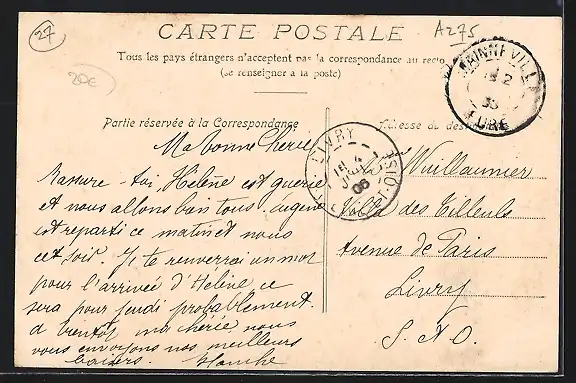 27
A275
20€
CARTE POSTALE
Tous les pays étrangers n'acceptent pas la correspondance au recto
(se renseigner à la poste)
Partie réservée à la Correspondance
Ma bonne Chérie
Rassure-toi Hélène est guérie
et nous allons bien tous. Eugène
est reparti ce matin et nous
cet soir. Je te renverrai un mot
pour l'arrivée d'Hélène ce
sera pour jeudi probablement.
à bientôt ma chérie nous
vous envoyons nos meilleurs
baisers. Blanche
LIVRY
4
06
S.-ET-OISE
EURE
Wuillaumier
Villa des Tilleuls
Avenue de Paris
Livry
S. & O.